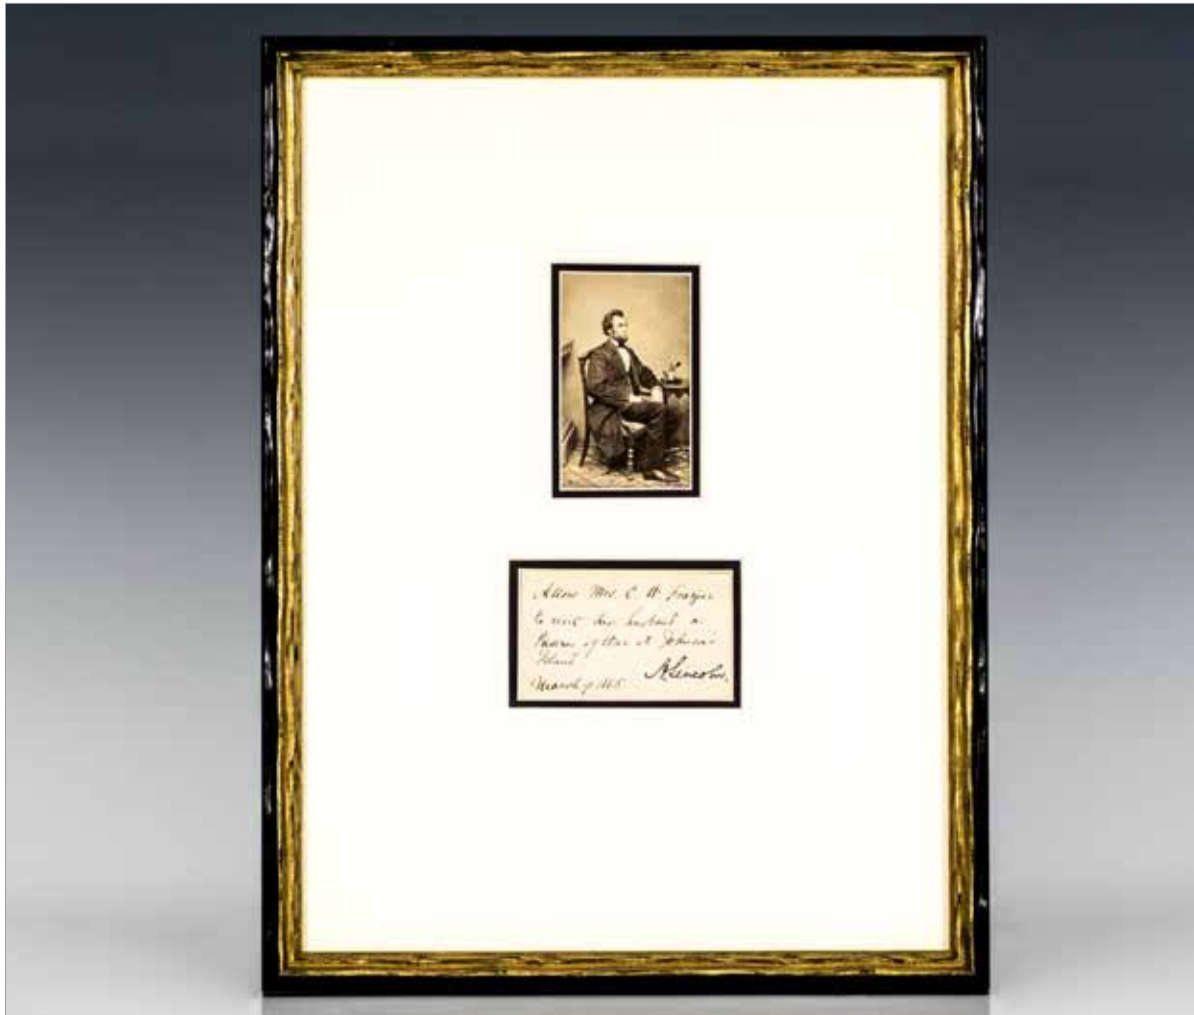 Allow Mrs. C. W. Frazier
to visit her husband a
Prisoner of War at Johnson's
Island
A. Lincoln.
March 9 1865